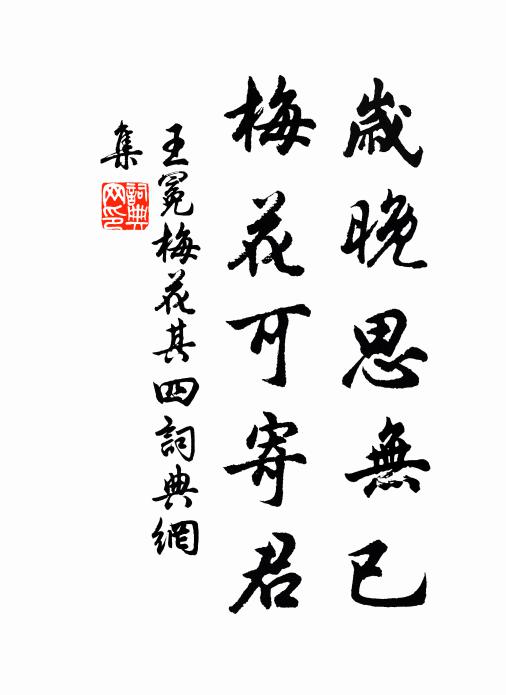 歲晚思無已
梅花可寄君
王冕梅花其四詞典網
集
詞典
网印